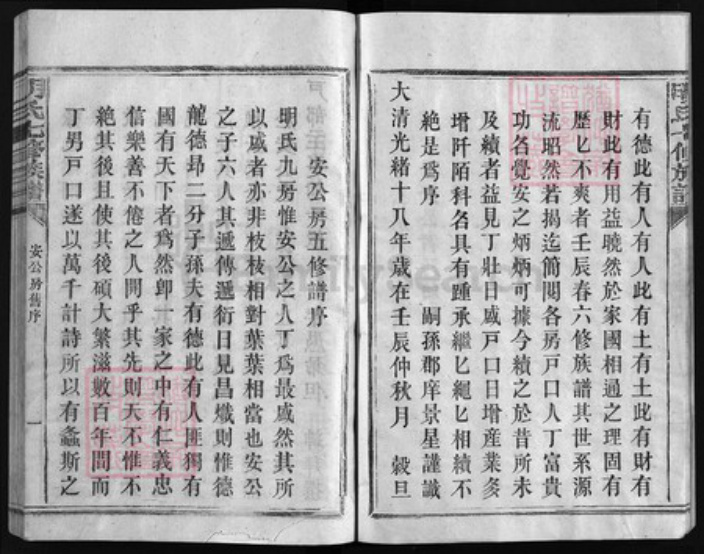 有德此有人有人此有土有土此有財有
財此有用益曉然於家國相通之理固有
歷匕不爽者壬辰春六修族譜其世系源
流昭然若揭迄簡閱各房戶口人丁富貴
功名覺安之炳炳可據今續之於昔所未
及續者益見丁壯日盛戶口日增產業多
增阡陌科名具有踵承繼匕繩匕相續不
絶是爲序
嗣孫郡庠景星謹識
大清光緒十八年歲在壬辰仲秋月 穀旦
安公房五修譜序
明氏九房惟安公之人丁爲最盛然其所
以盛者亦非枝枝相對葉葉相當也安公
之子六人其遞傳遞衍日見昌熾則惟德
龍德昂二分子孫夫有德此有人匪獨有
國有天下者爲然卽一家之中有仁義忠
信樂善不倦之人開乎其先則天不惟不
絶其後且使其後碩大繁滋數百年間而
丁男戶口遂以萬千計詩所以有螽斯之
明氏七修族譜
安公房舊序
一